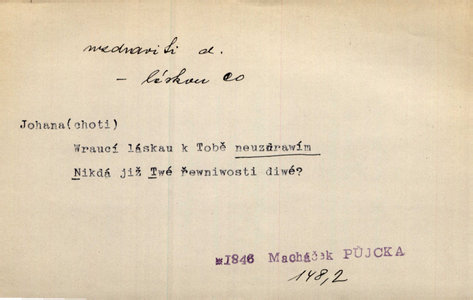 uzdraviti d.
– láskou co
Johana(choti)
Wraucí láskau k Tobě neuzdrawím
Nikdá již Twé řewniwosti diwé?
*1846 Macháček PŮJCKA
148,2